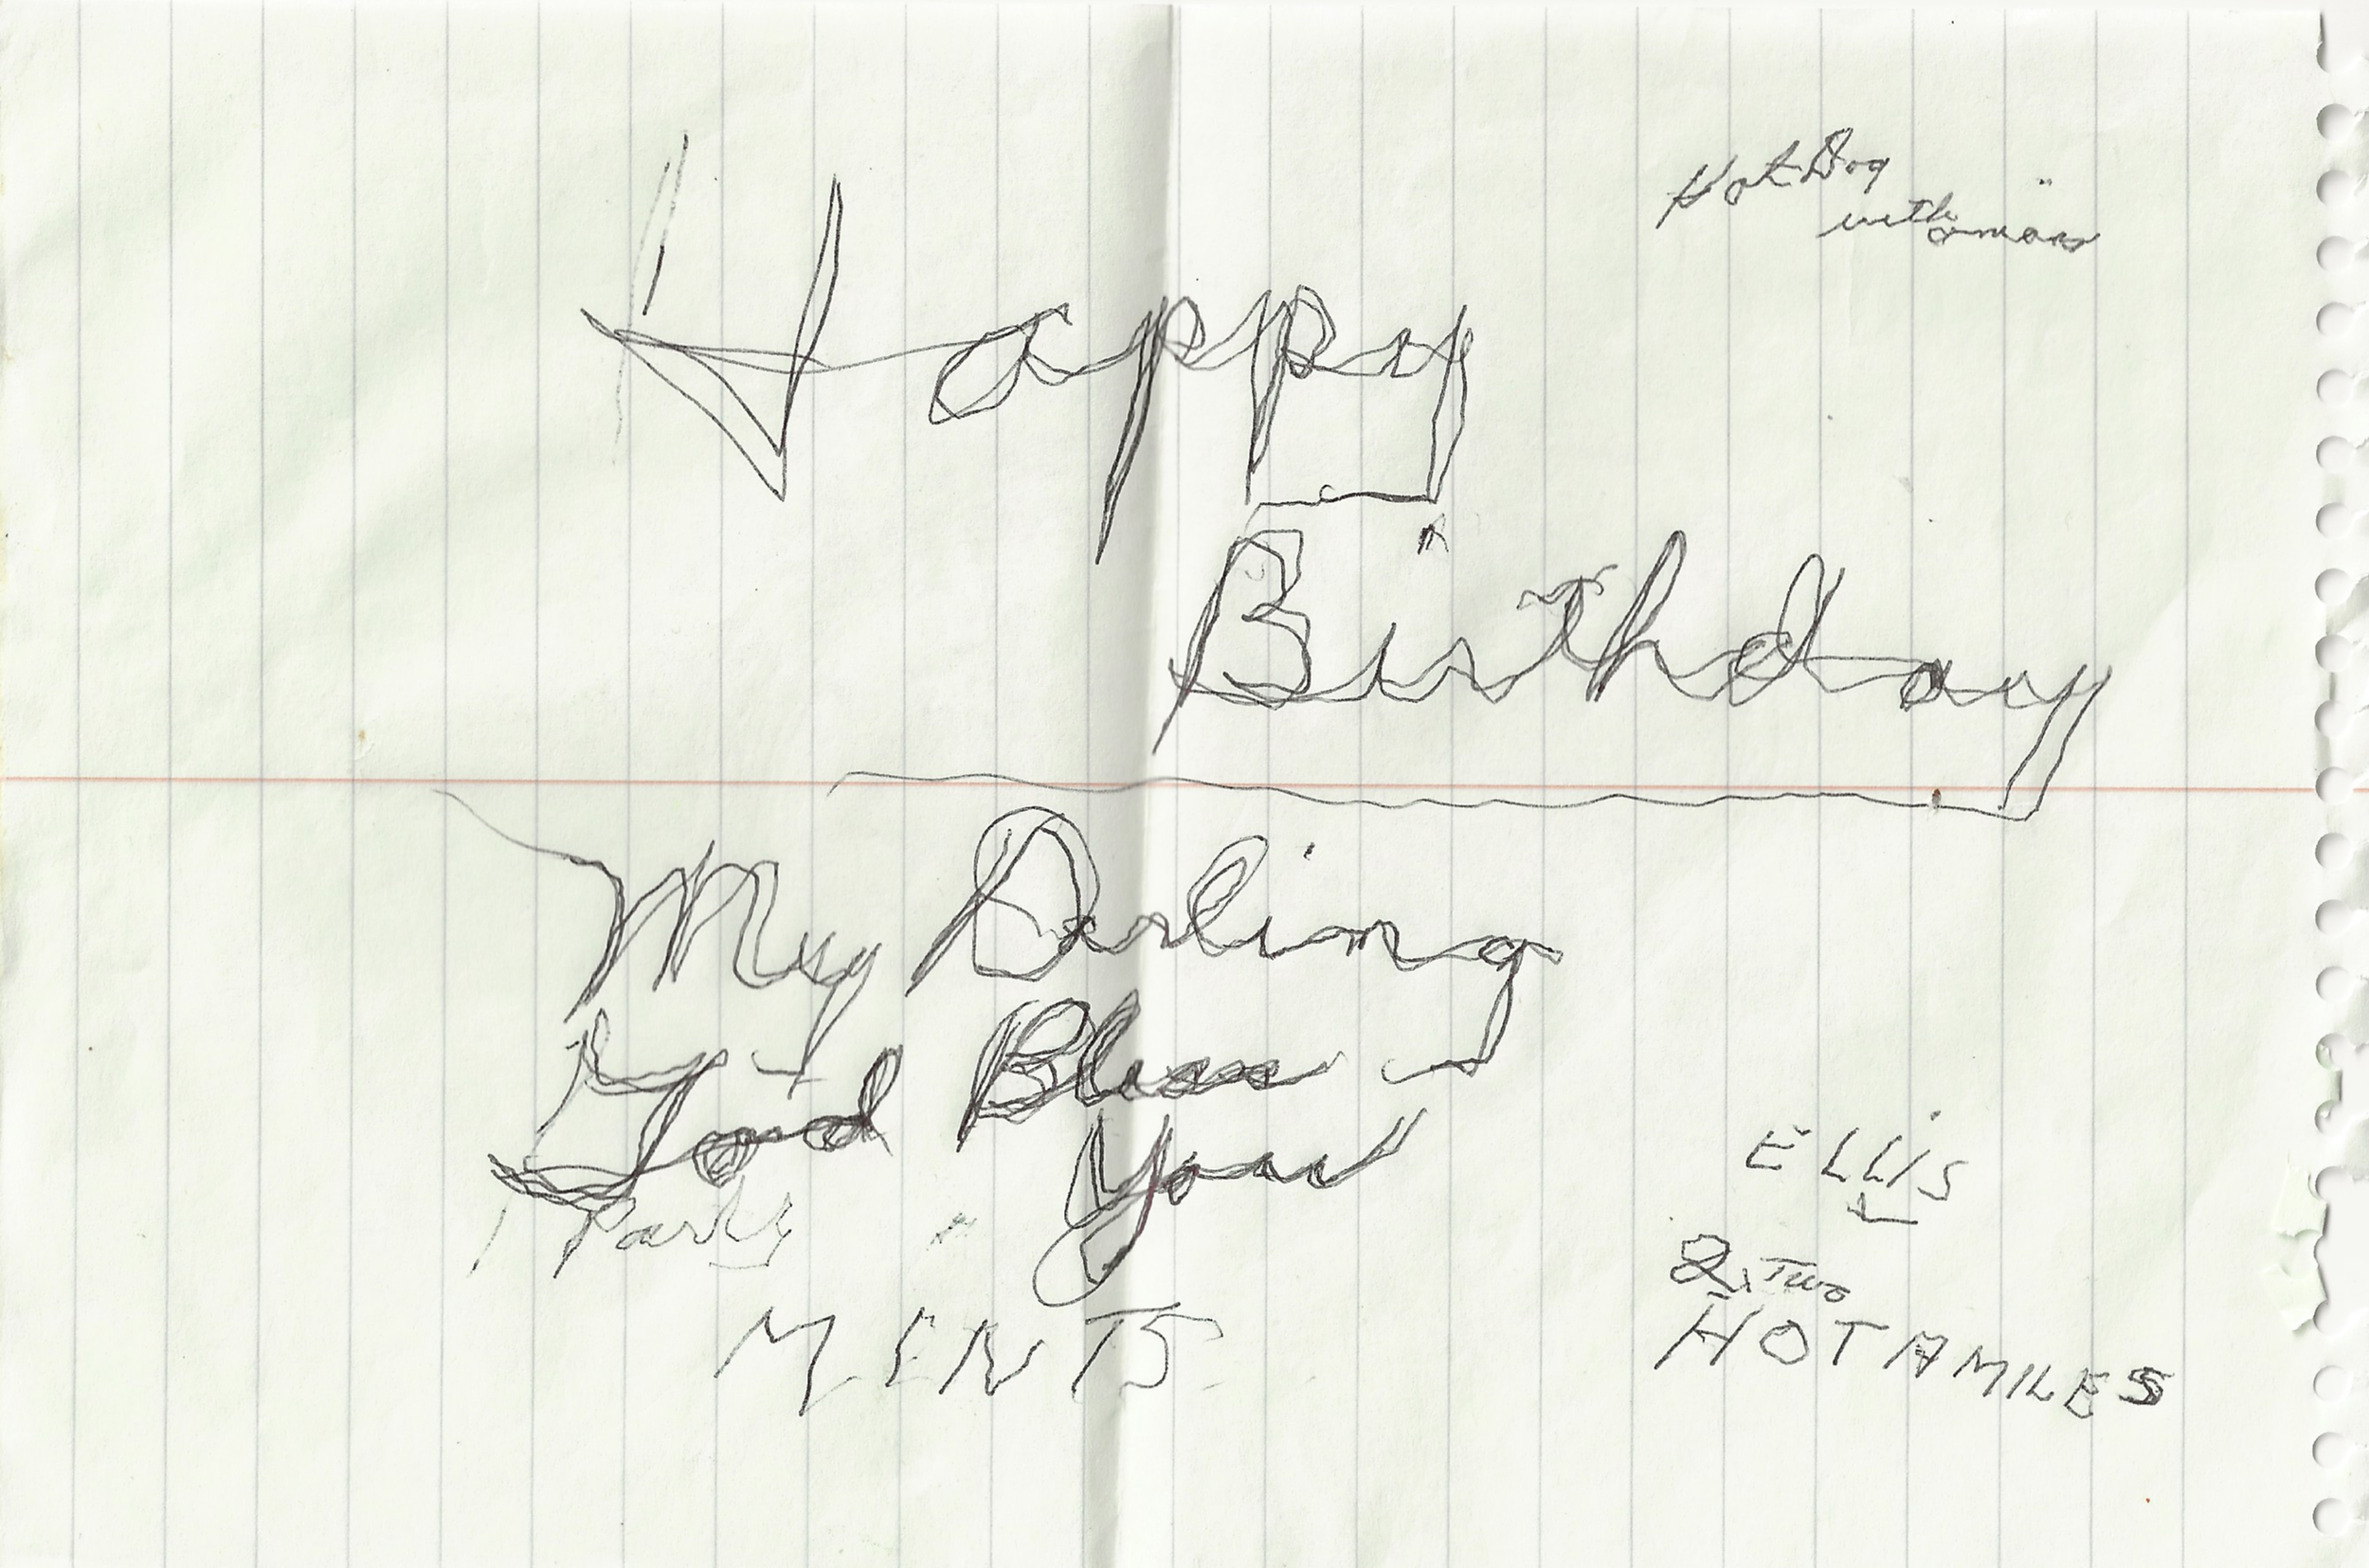 Hot Dog
with
Happy
Birthday
My Darling
God Bless
You
ELLIS
Party
2. Two
MENTS
HOTAMILES